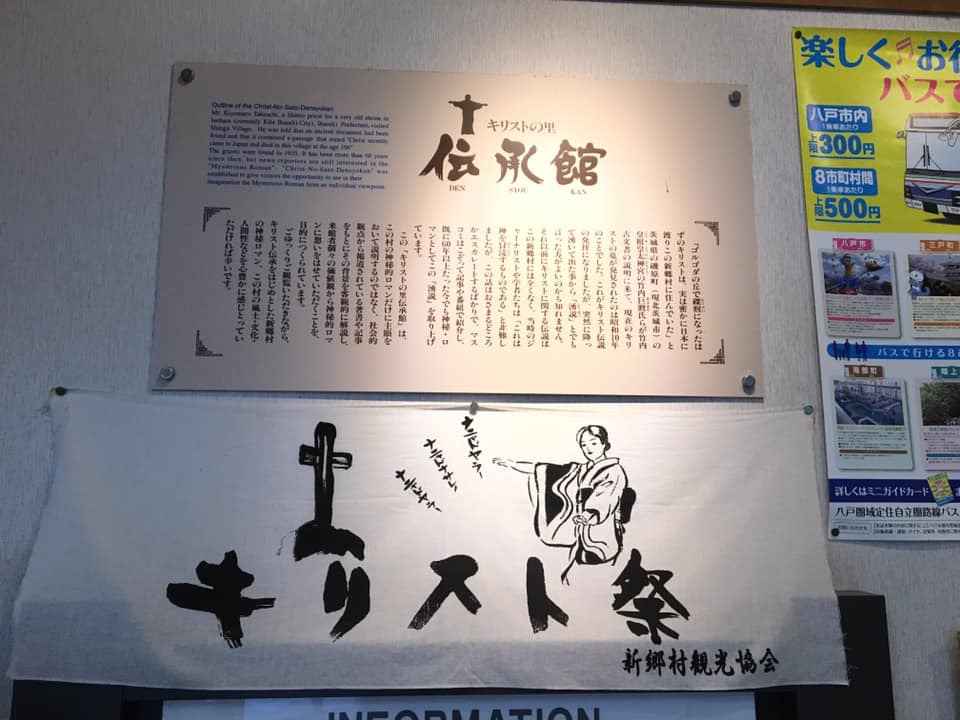 Outline of the Christ-No-Sato-Densyokan
Mr. Kiyomaro Takeuchi, a Shinto priest for a very old shrine in
Isohara (currently Kita Ibaraki City), Ibaraki Prefecture, visited
Shingo Village. He was told that an ancient document had been
found and that it contained a passage that stated "Christ secretly
came to Japan and died in this village at the age 106"
The graves were found in 1935. It has been more than 60 years
since then, but news reporters are still interested in the
"Mysterious Roman". "Christ-No-Sato-Densyokan" was
established to give visitors the opportunity to use in their
imagination the Mysterious Roman from an individual viewpoint.
キリストの里
伝承館
DEN SYOU KAN
「ゴルゴダの丘で磔刑になったは
ずのキリストは、実は密かに日本に
渡りこの新郷村に住んでいた」と
茨城県の磯原町（現北茨城市）の
皇祖皇太神宮の竹内巨麿氏らが竹内
古文書の説明に来て、現在のキリ
ストの墓が発見されたのは昭和10年
のことでした。これがキリスト伝説
の発祥になりましたが、突然に降っ
て湧いて出た事から、「湧説」とでも
言った方がよいのかも知れません。
それ以前にキリストに関する伝説は
この新郷村には全くなく、当時のジ
ャーナリストや学者たちは、「これは
神を冒涜するものである」と非難し
ましたが、この話はおさまるどころ
かエスカレートするばかりで、マス
コミはこぞって記事や番組で紹介し、
既に60年以上たった今でも神秘・ロ
マンとしてこの「湧説」を取り上げ
ています。
この「キリストの里伝承館」は、
この村の神秘的ロマンだけに主眼を
おいて説明するのではなく、社会的
観点から報道されている著書や記事
をもとにその背景を客観的に解説し、
来館者個々の価値観から神秘的ロマ
ンに思いをはせていただくことを、
目的につくられています。
ごゆっくりご観覧いただきながら、
キリスト伝承をはじめとした新郷村
の神秘ロマン、この村の風土・文化・
人間性などを心豊かに感じとってい
ただければ幸いです。
ナニャドヤラー
ナニャドナサレ
ナニャドヤラー
キリスト祭
新郷村観光協会
INFORMATION
楽しく♬お得
バスで
八戸市内
1乗車あたり
上限300円
8市町村間
1乗車あたり
上限500円
八戸市
三戸町
バスで行ける8
南部町
階上
詳しくはミニガイドカード
八戸圏域定住自立圏路線バス